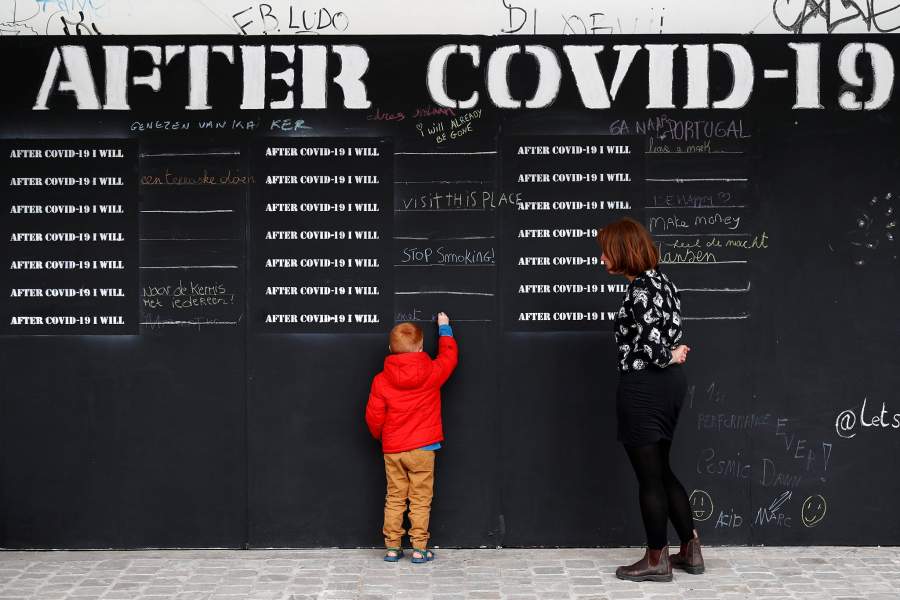 F.B. LUDO
AFTER COVID-19
GENEZEN VAN KANKER
I WILL ALREADY
BE GONE
GA NAAR PORTUGAL
AFTER COVID-19 I WILL
AFTER COVID-19 I WILL
een terraske doen
AFTER COVID-19 I WILL
AFTER COVID-19 I WILL
AFTER COVID-19 I WILL
AFTER COVID-19 I WILL
Naar de Kermis
met iedereen!
AFTER COVID-19 I WILL
AFTER COVID-19 I WILL
AFTER COVID-19 I WILL
AFTER COVID-19 I WILL
visit THIS PLACE
AFTER COVID-19 I WILL
AFTER COVID-19 I WILL
STOP Smoking!
AFTER COVID-19 I WILL
AFTER COVID-19 I WILL
AFTER COVID-19 I WILL
AFTER COVID-19 I WILL
AFTER COVID-19 I WILL
BE HAPPY
AFTER COVID-19 I WILL
Make Money
heel de nacht
dansen
AFTER COVID-19 I WILL
AFTER COVID-19 I WILL
PERFORMANCE EVER!
Cosmic Dawn
ACID MARC
@Lets